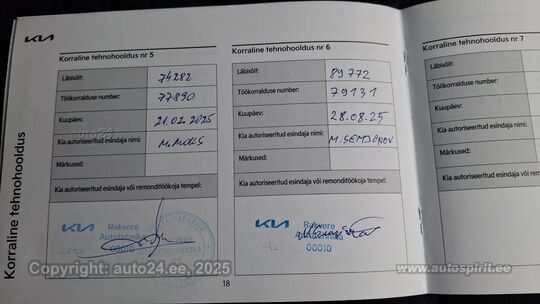 KIA
Korraline tehnohooldus
Korraline tehnohooldus nr 5
Läbisõit: 74282
Töökorralduse number: 77890
Kuupäev: 21.02.2025
Kia autoriseeritud esindaja nimi: M. MOKS
Märkused:
Kia autoriseeritud esindaja või remonditöökoja tempel:
KIA Rakvere
Autotehnika
00010
Korraline tehnohooldus nr 6
Läbisõit: 89772
Töökorralduse number: 79131
Kuupäev: 28.08.25
Kia autoriseeritud esindaja nimi: M. SEMJONOV
Märkused:
Kia autoriseeritud esindaja või remonditöökoja tempel:
KIA Rakvere
Autotehnika
00010
18
Korraline tehnohooldus nr 7
Läbisõit:
Töökorralduse number:
Kuupäev:
Kia autoriseeritud
Märkused:
Kia autoriseeritud esin
auto24
Copyright: auto24.ee, 2025
www.autospirit.ee